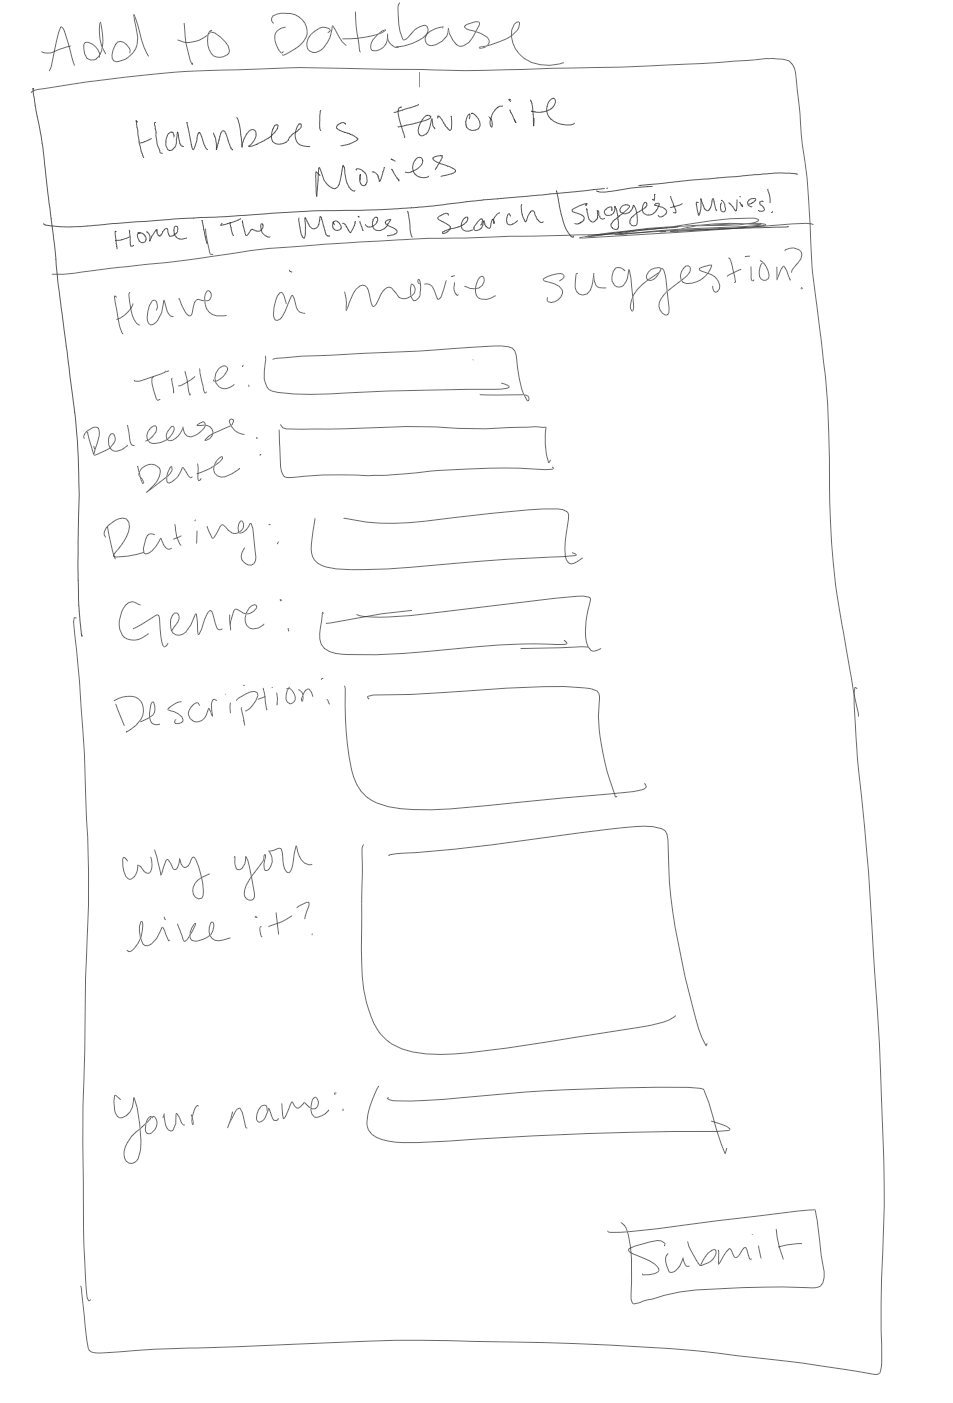 Add to Database
Hahnbee's Favorite
Movies
Home | The Movies | Search | Suggest Movies!
Have a movie suggestion?
Title:
Release
Date:
Rating:
Genre:
Description:
Why you
like it?
Your name:
Submit